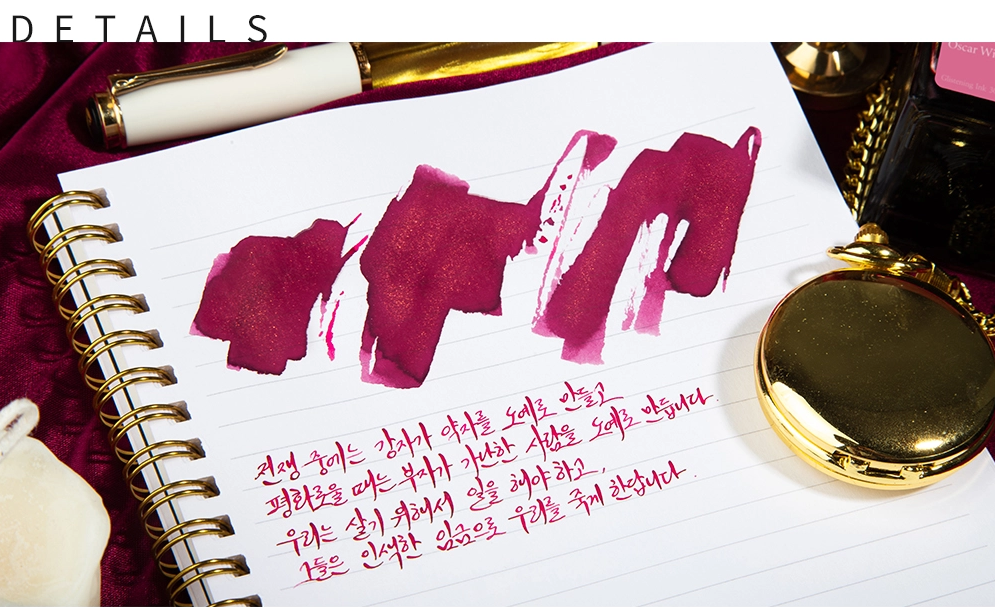 DETAILS
Oscar Wi
전쟁 중에는 강자가 약자를 노예로 만들고
평화로울 때는 부자가 가난한 사람을 노예로 만듭니다.
우리는 살기 위해서 일을 해야 하고,
그들은 인색한 임금으로 우리를 죽게 한답니다.